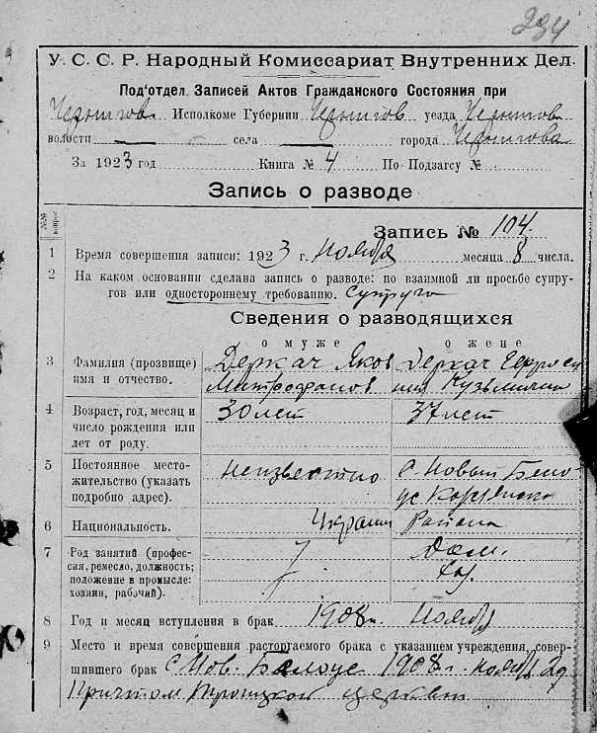 234
У. С. С. Р. Народный Комиссариат Внутренних Дел.
Под'отдел Записей Актов Гражданского Состояния при
Чернигов. Исполкоме Губернии Чернигов уезда Чернигов
волости — села — города Чернигова
За 1923 год Книга № 4 По Подзагсу № -
Запись о разводе
№№ вопрос.
Запись № 104.
1 Время совершения записи: 1923 г. Ноября месяца 8 числа.
2 На каком основании сделана запись о разводе: по взаимной ли просьбе супру-
гов или одностороннему требованию. Супруга
Сведения о разводящихся
о муже о жене
3 Фамилия (прозвище) Деркач Яков Деркач Ефроси
имя и отчество. Митрофанов ния Кузьминична
4 Возраст, год, месяц и 30 лет 37 лет
число рождения или
лет от роду.
5 Постоянное место- неизвестно с. Новый Бело-
жительство (указать ус
подробно адрес).
6 Национальность. Украин Района
7 Род занятий (профес- Дом.
сия, ремесло, должность; хоз.
положение в промысле:
хозяин, рабочий).
8 Год и месяц вступления в брак 1908 г. Ноября
9 Место и время совершения расторгаемого брака с указанием учреждения, совер-
шившего брак с Нов. Белоус 1908 г. ноября 2 д
Причтом Троицкой церкви